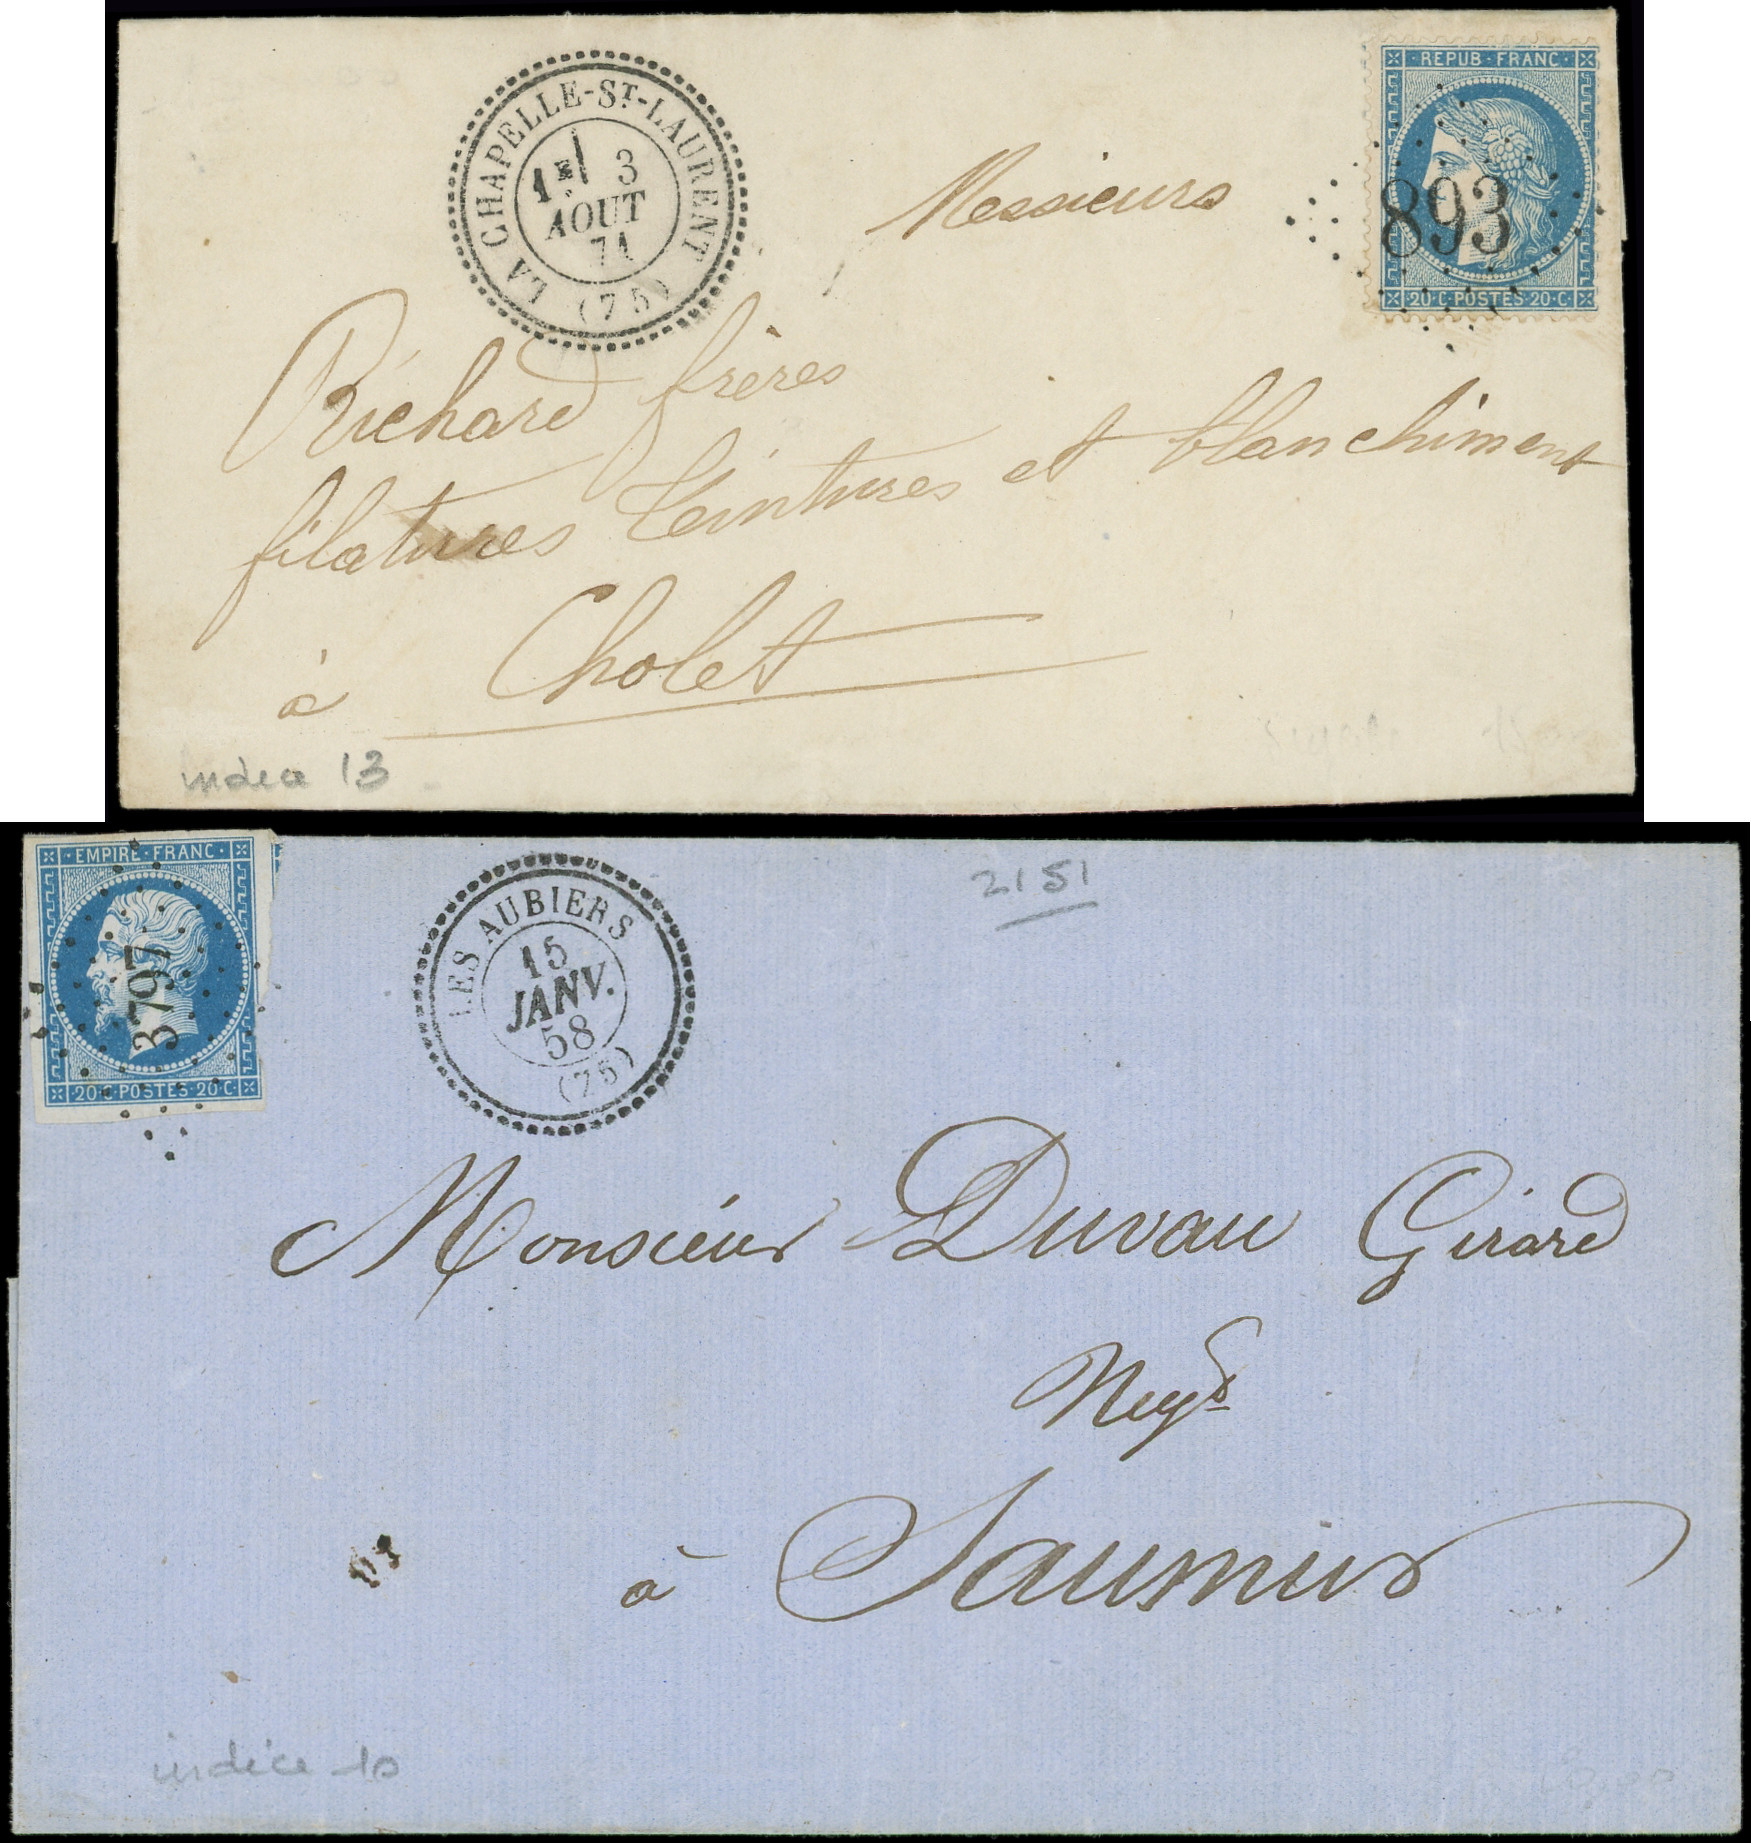 LA CHAPELLE-ST-LAURENT
1E/ 3
AOUT
71
(75)
REPUB·FRANC·
893
20·C·POSTES·20·C·
Messieurs
Richard frères
filatures teintures et blanchiment
à Cholet
indice 13
EMPIRE·FRANC·
3797
·20·C·POSTES·20·C·
LES AUBIERS
15
JANV.
58
(75)
2151
Monsieur Duvau Girard
Negt
à Saumur
indice 10